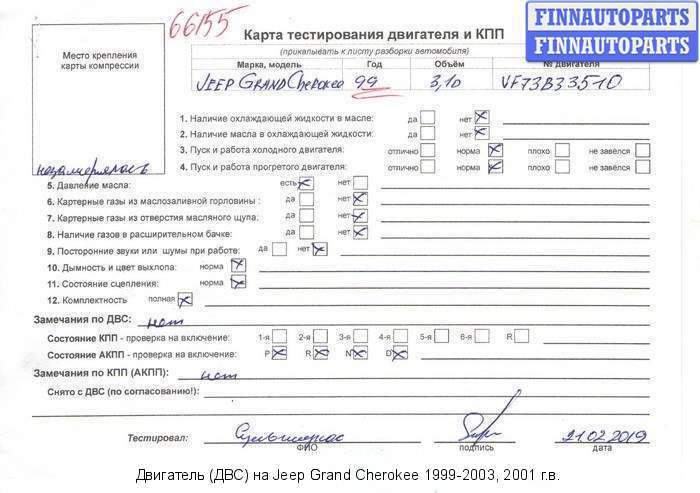 66155
FINNAUTOPARTS
FINNAUTOPARTS
Место крепления
карты компрессии
незамерялась
Карта тестирования двигателя и КПП
(прикалывать к листу разборки автомобиля)
Марка, модель Год Объём № двигателя
JEEP GRAND Cherokee 99 3,1D VF73B33510
1. Наличие охлаждающей жидкости в масле: да нет
2. Наличие масла в охлаждающей жидкости: да нет
3. Пуск и работа холодного двигателя: отлично норма плохо не завёлся
4. Пуск и работа прогретого двигателя: отлично норма плохо не завёлся
5. Давление масла: есть нет
6. Картерные газы из маслозаливной горловины : да нет
7. Картерные газы из отверстия масляного щупа: да нет
8. Наличие газов в расширительном бачке: да нет
9. Посторонние звуки или шумы при работе: да нет
10. Дымность и цвет выхлопа: норма
11. Состояние сцепления: норма
12. Комплектность полная
Замечания по ДВС: нет
Состояние КПП - проверка на включение: 1-я 2-я 3-я 4-я 5-я 6-я R
Состояние АКПП - проверка на включение: P R N D
Замечания по КПП (АКПП): нет
Снято с ДВС (по согласованию!):
Тестировал: 21.02.2019
ФИО подпись дата
Двигатель (ДВС) на Jeep Grand Cherokee 1999-2003, 2001 г.в.